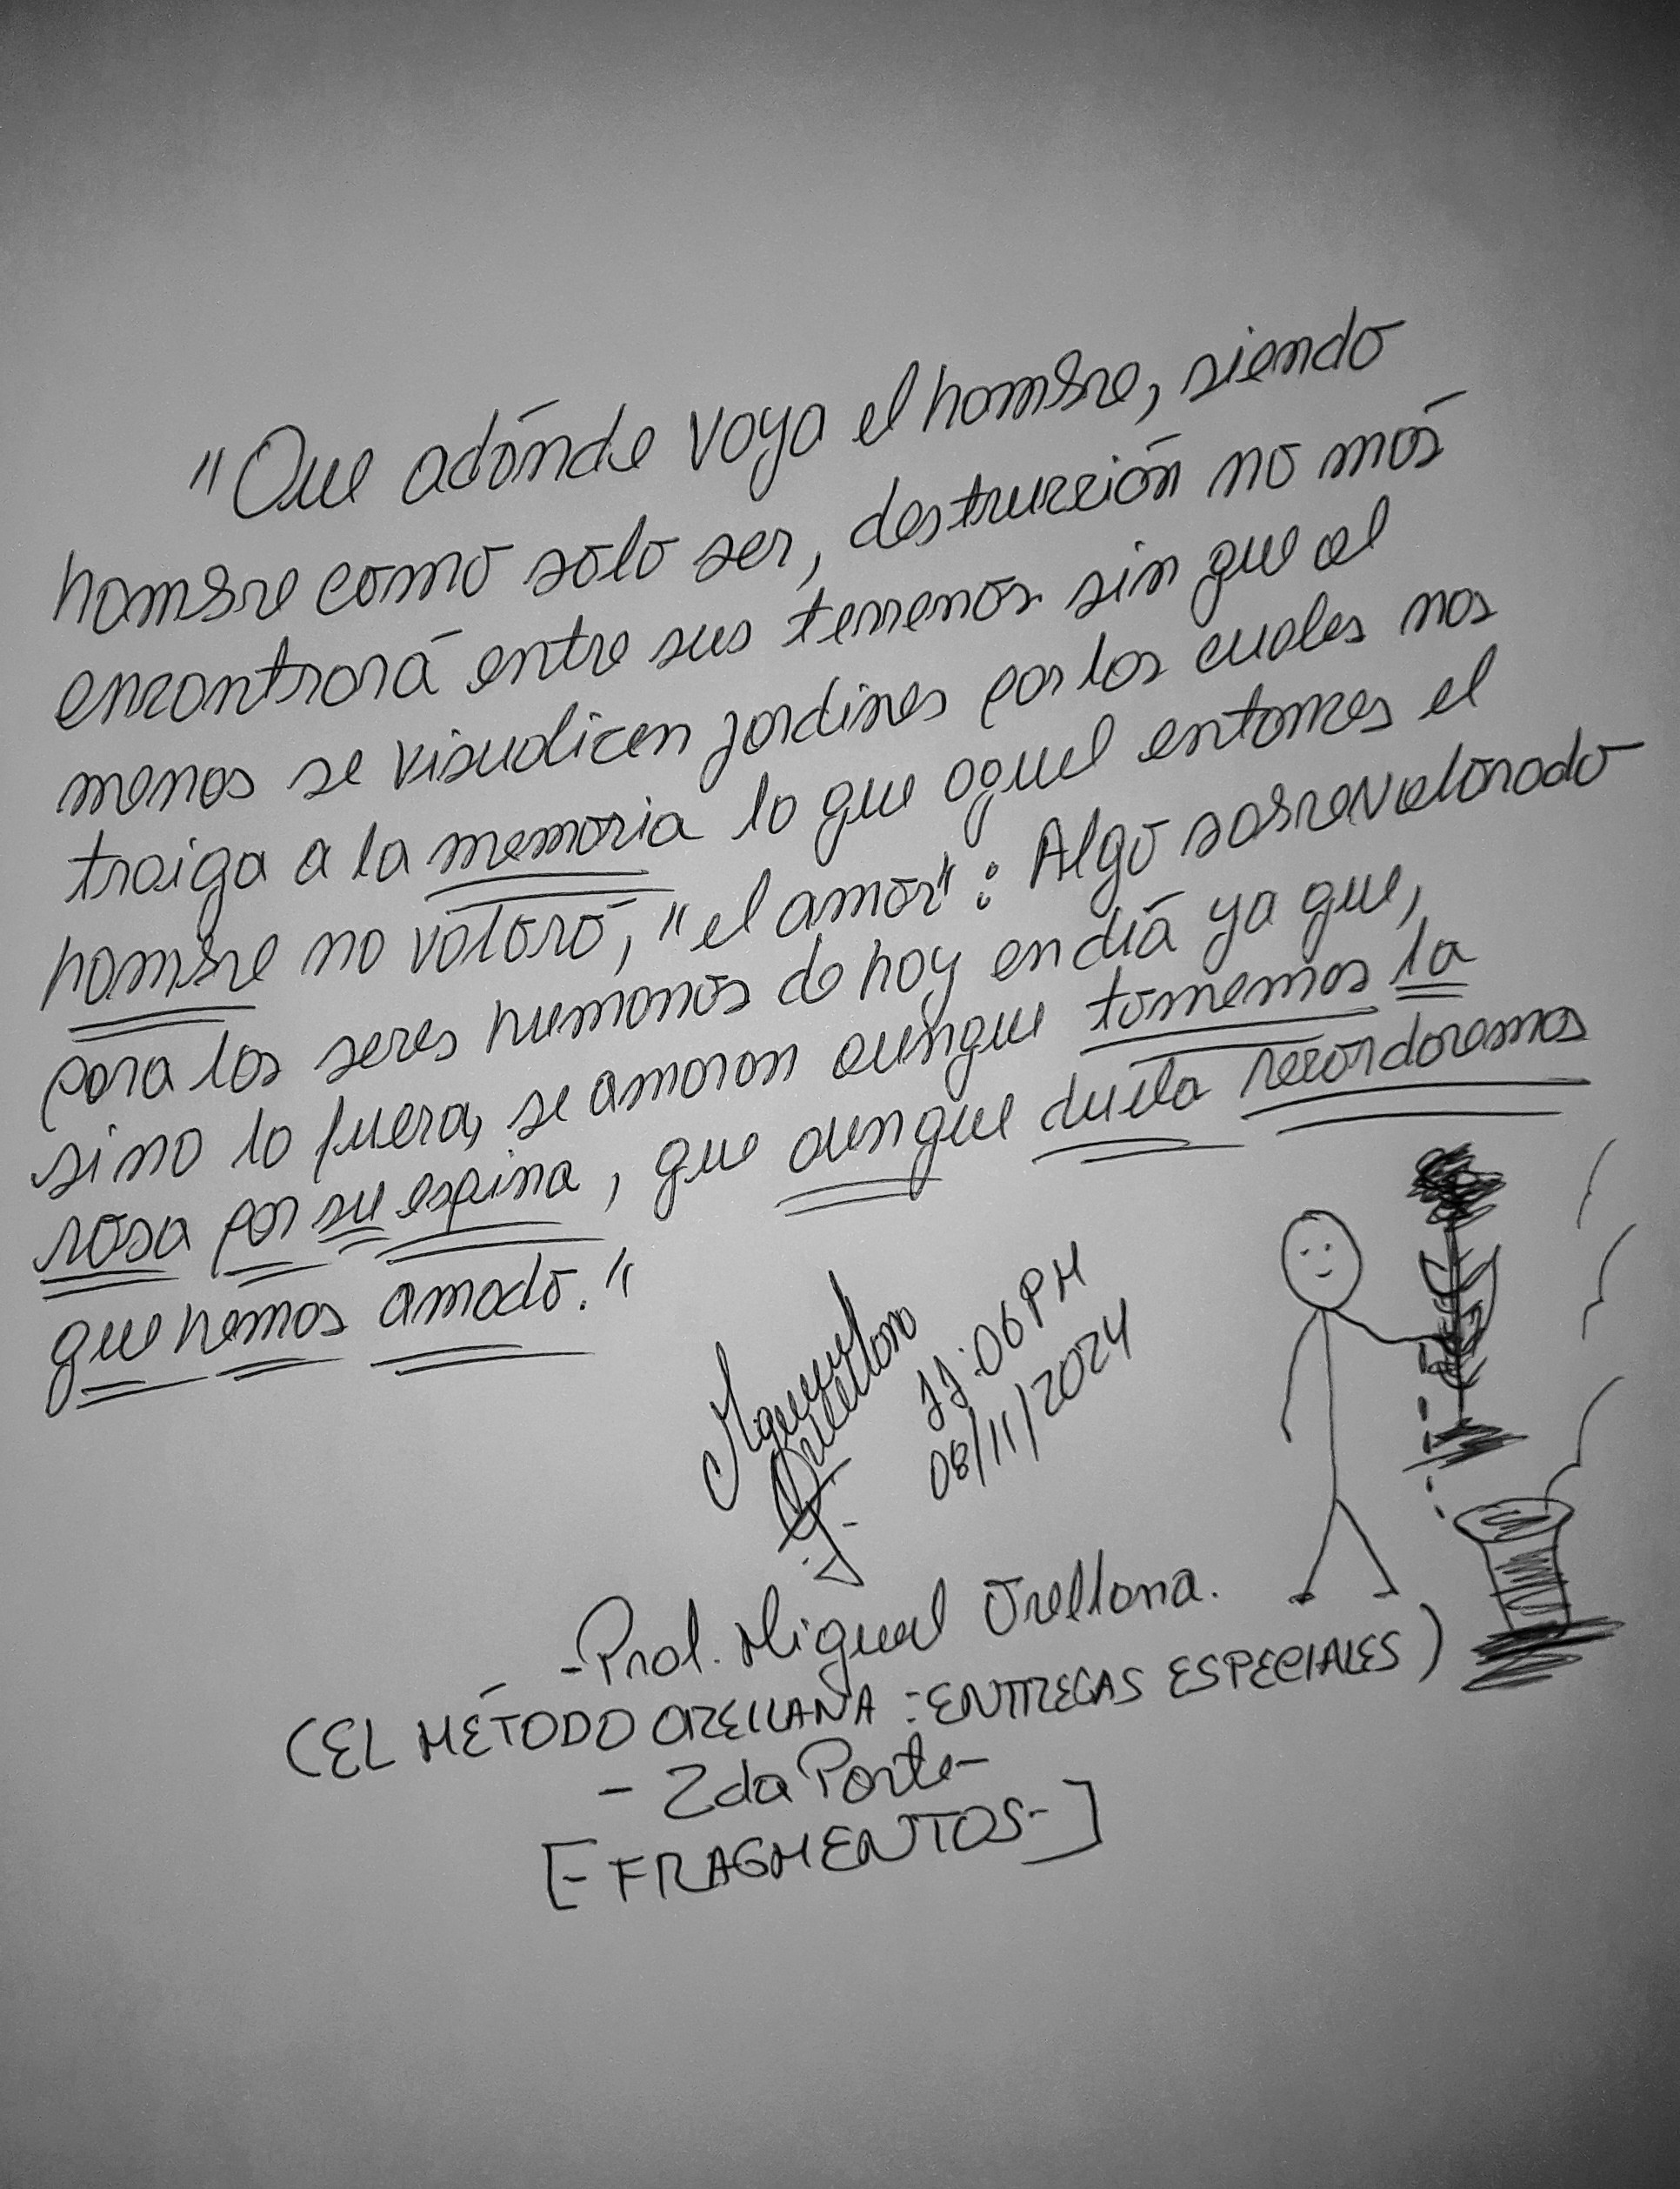 "Que adónde vaya el hombre, siendo
hombre como solo ser, destrucción no más
encontrará entre sus terrenos sin que al
menos se visualicen jardines por los cuales nos
traiga a la memoria lo que aquel entonces el
hombre no valoró, "el amor": Algo sobrevalorado
para los seres humanos de hoy en día ya que,
si no lo fuera, se amaran aunque tomemos la
rosa por su espina, que aunque duela recordaremos
que hemos amado."
Miguel Orellana
11:06 PM
08/11/2024
-Prof. Miguel Orellana.
(EL MÉTODO ORELLANA: ENTREGAS ESPECIALES)
- 2da Parte-
[-FRAGMENTOS-]